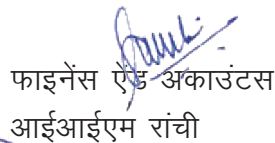 फाइनेंस ऐंड अकाउंटस
आईआईएम रांची